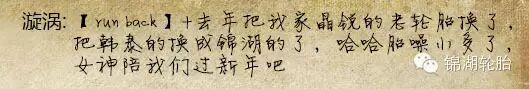 漩涡:【run back】+去年把我家晶锐的老轮胎换了,
把韩泰的换成锦湖的了,哈哈胎噪小多了,
女神陪我们过新年吧
锦湖轮胎